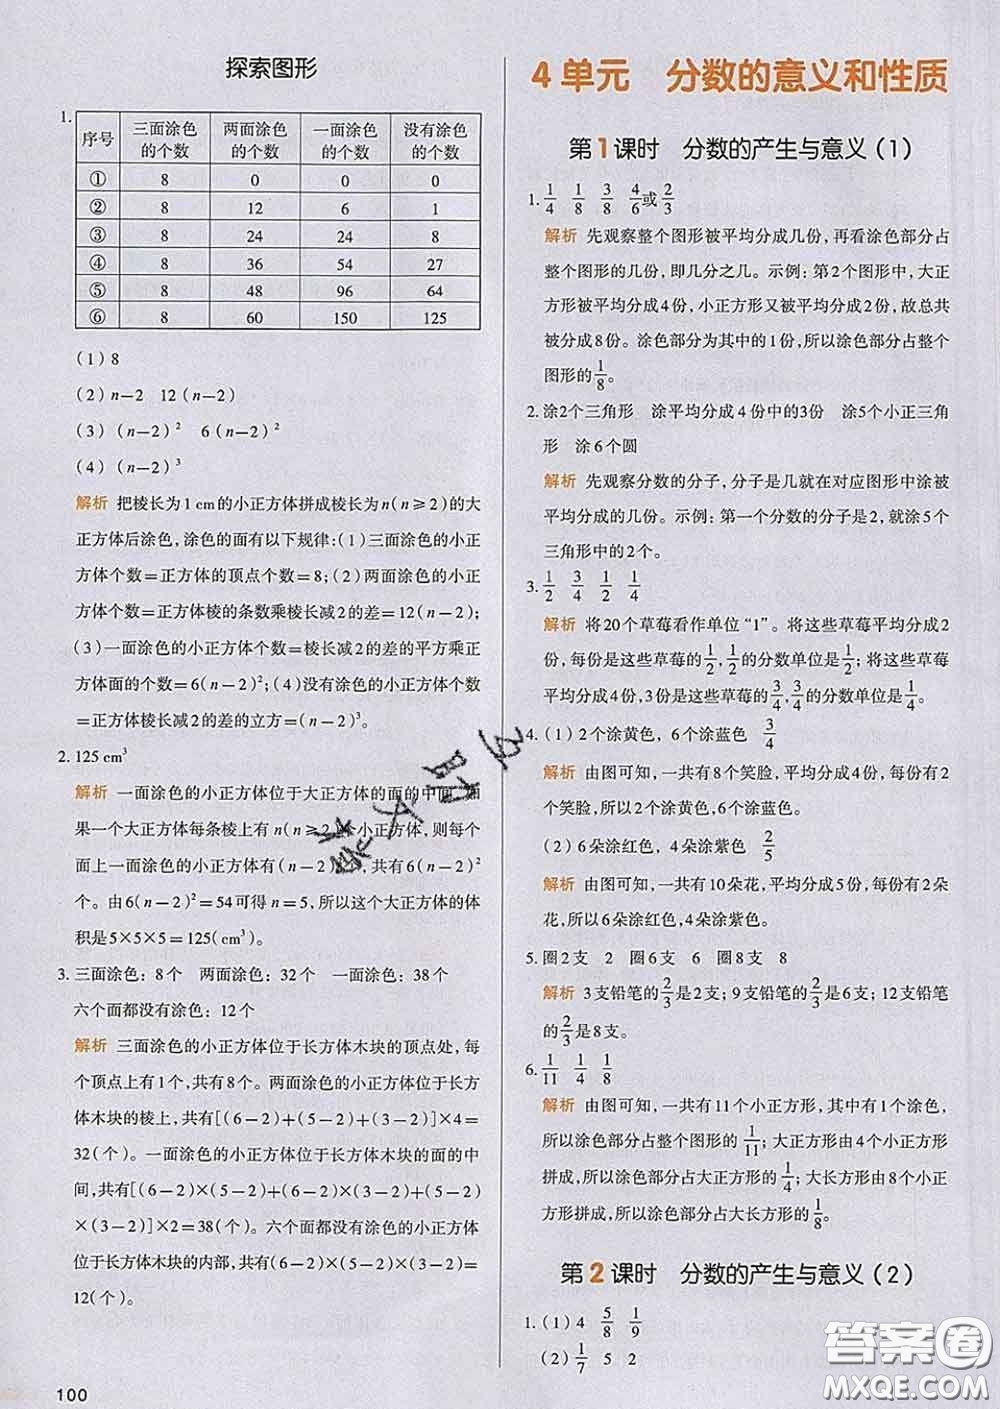 探索图形
1.
序号 三面涂色的个数 两面涂色的个数 一面涂色的个数 没有涂色的个数
① 8 0 0 0
② 8 12 6 1
③ 8 24 24 8
④ 8 36 54 27
⑤ 8 48 96 64
⑥ 8 60 150 125
(1) 8
(2) n-2 12(n-2)
(3) (n-2)² 6(n-2)²
(4) (n-2)³
解析 把棱长为1 cm的小正方体拼成棱长为n(n≥2)的大
正方体后涂色,涂色的面有以下规律:(1)三面涂色的小正
方体个数=正方体的顶点个数=8;(2)两面涂色的小正
方体个数=正方体棱的条数乘棱长减2的差=12(n-2);
(3)一面涂色的小正方体个数=棱长减2的差的平方乘正
方体面的个数=6(n-2)²;(4)没有涂色的正方体个数
=正方体棱长减2的差的立方=(n-2)³。
2. 125 cm³
解析 一面涂色的小正方体位于大正方体的面的中间,如
果一个大正方体每条棱上有n(n≥2)个小正方体,则每个
面上一面涂色的小正方体有(n-2)²个,共有6(n-2)²
个。由6(n-2)²=54可得n=5,所以这个大正方体的体
积是5×5×5=125(cm³)。
3. 三面涂色:8个 两面涂色:32个 一面涂色:38个
六个面都没有涂色:12个
解析 三面涂色的小正方体位于长方体木块的顶点处,每
个顶点上有1个,共有8个。两面涂色的小正方体位于长方
体木块的棱上,共有[(6-2)+(5-2)+(3-2)]×4=
32(个)。一面涂色的小正方体位于长方体木块的面的中
间,共有[(6-2)×(5-2)+(6-2)×(3-2)+(5-2)
×(3-2)]×2=38(个)。六个面都没有涂色的小正方体
位于长方体木块的内部,共有(6-2)×(5-2)×(3-2)=
12(个)。
100
4 单元 分数的意义和性质
第1课时 分数的产生与意义(1)
1. 1/4 1/8 3/8 4/6或2/3
解析 先观察整个图形被平均分成几份,再看涂色部分占
整个图形的几份,即几分之几。示例:第2个图形中,大正
方形被平均分成4份,小正方形又被平均分成2份,故总共
被分成8份。涂色部分为其中的1份,所以涂色部分占整个
图形的1/8。
2. 涂2个三角形 涂平均分成4份中的3份 涂5个小正三角
形 涂6个圆
解析 先观察分数的分子,分子是几就在对应图形中涂被
平均分成的几份。示例:第一个分数的分子是2,就涂5个
三角形中的2个。
3. 1/2 3/4 1/2 1/4
解析 将20个草莓看作单位“1”。将这些草莓平均分成2
份,每份是这些草莓的1/2,1/2的分数单位是1/2;将这些草莓
平均分成4份,3份是这些草莓的3/4,3/4的分数单位是1/4。
4. (1)2个涂黄色,6个涂蓝色 3/4
解析 由图可知,一共有8个笑脸,平均分成4份,每份有2
个笑脸,所以2个涂黄色,6个涂蓝色。
(2)6朵涂红色,4朵涂紫色 2/5
解析 由图可知,一共有10朵花,平均分成5份,每份有2朵
花,所以6朵涂红色,4朵涂紫色。
5. 圈2支 2 圈6支 6 圈8支 8
解析 3支铅笔的2/3是2支;9支铅笔的2/3是6支;12支铅笔
的2/3是8支。
6. 1/11 1/4 1/8
解析 由图可知,一共有11个小正方形,其中有1个涂色,
所以涂色部分占整个图形的1/11;大正方形由4个小正方形
拼成,所以涂色部分占大正方形的1/4;大长方形由8个小正
方形拼成,所以涂色部分占大长方形的1/8。
第2课时 分数的产生与意义(2)
1. (1) 4 5/8 1/9
(2) 1/7 5 2
答案圈
MXQE.COM